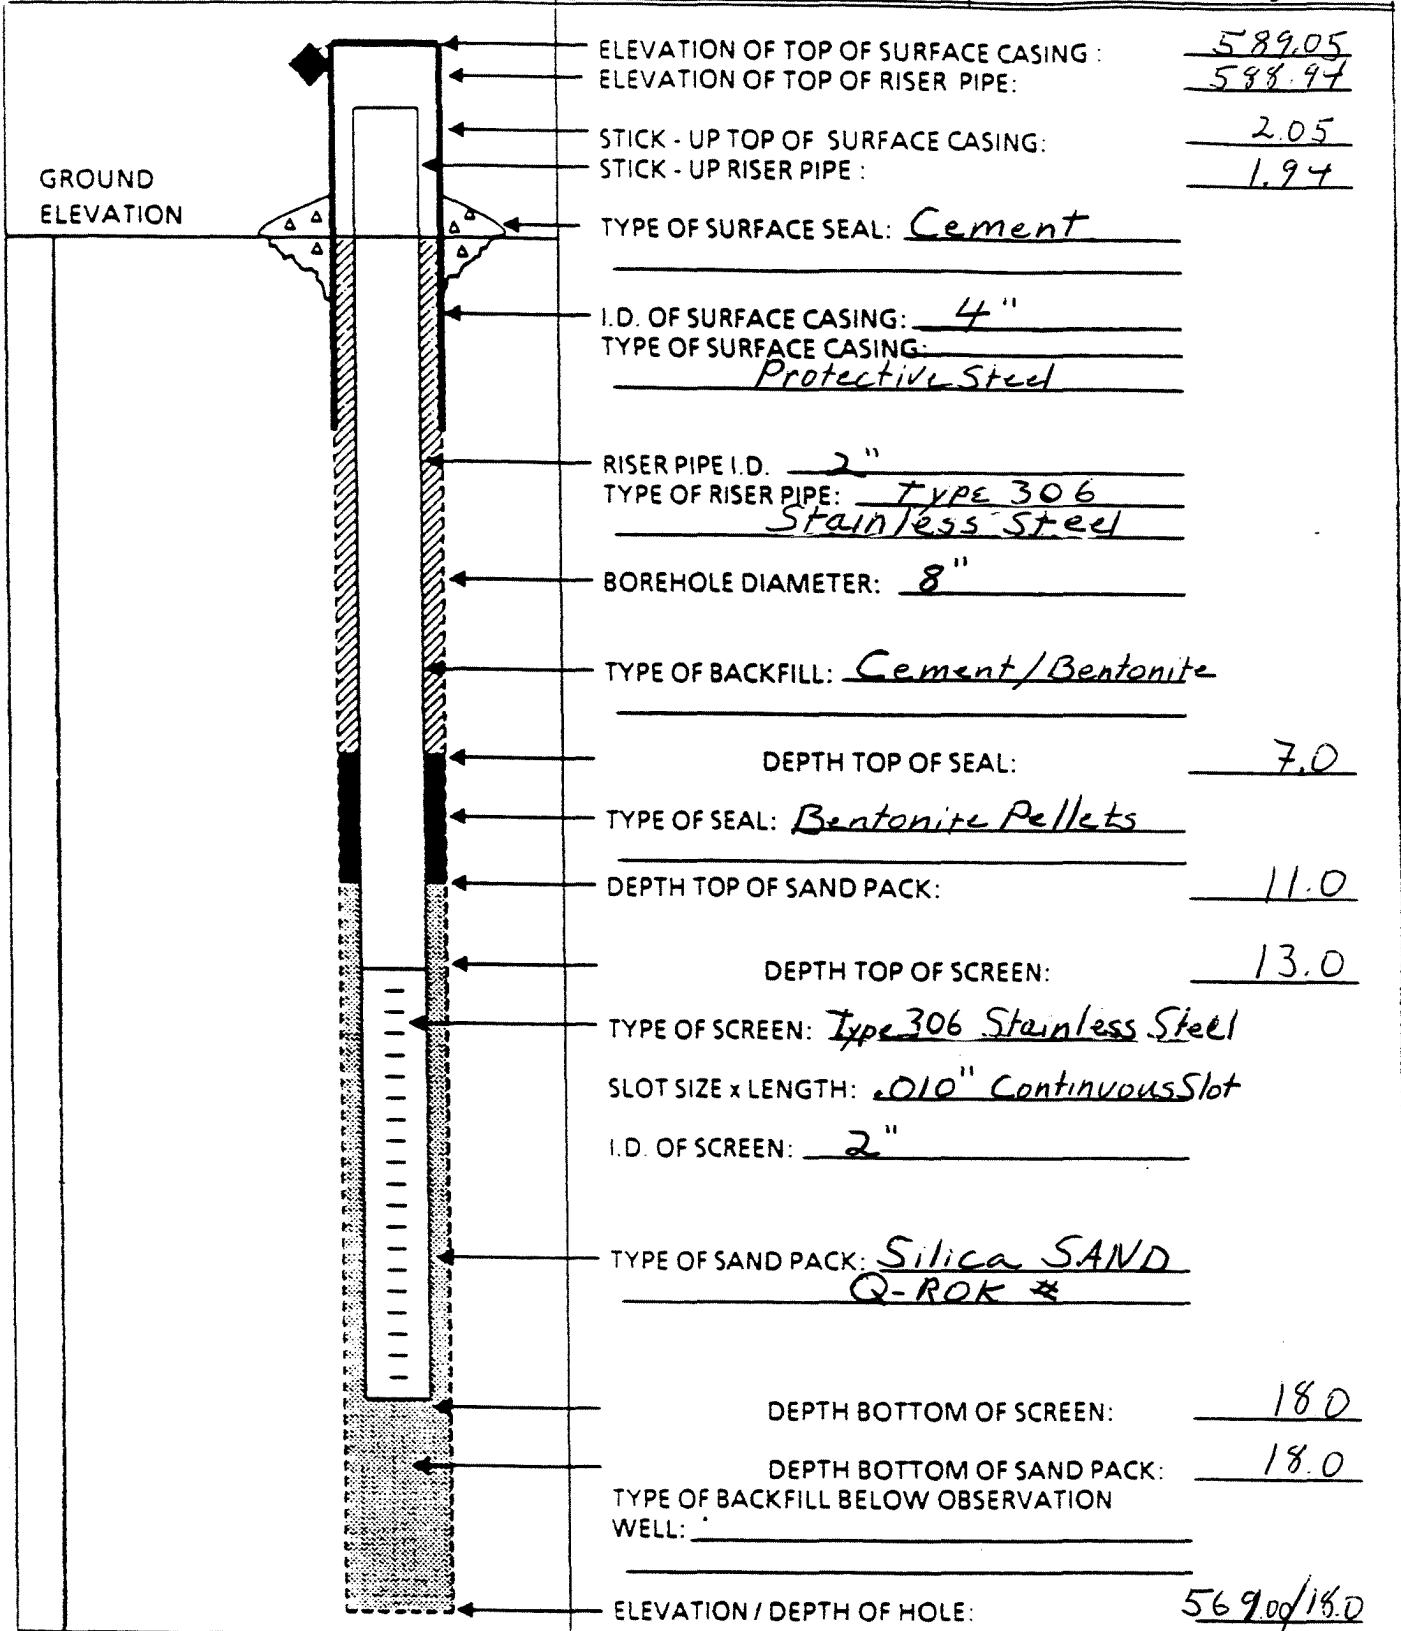 ELEVATION OF TOP OF SURFACE CASING : 589.05
ELEVATION OF TOP OF RISER PIPE: 588.94
STICK - UP TOP OF SURFACE CASING: 2.05
STICK - UP RISER PIPE : 1.94
GROUND
ELEVATION
TYPE OF SURFACE SEAL: Cement
I.D. OF SURFACE CASING: 4"
TYPE OF SURFACE CASING:
Protective Steel
RISER PIPE I.D. 2"
TYPE OF RISER PIPE: TYPE 306
Stainless Steel
BOREHOLE DIAMETER: 8"
TYPE OF BACKFILL: Cement/Bentonite
DEPTH TOP OF SEAL: 7.0
TYPE OF SEAL: Bentonite Pellets
DEPTH TOP OF SAND PACK: 11.0
DEPTH TOP OF SCREEN: 13.0
TYPE OF SCREEN: Type 306 Stainless Steel
SLOT SIZE x LENGTH: .010" Continuous Slot
I.D. OF SCREEN: 2"
TYPE OF SAND PACK: Silica SAND
Q-ROK #
DEPTH BOTTOM OF SCREEN: 18.0
DEPTH BOTTOM OF SAND PACK: 18.0
TYPE OF BACKFILL BELOW OBSERVATION
WELL:
ELEVATION / DEPTH OF HOLE: 569.00/18.0